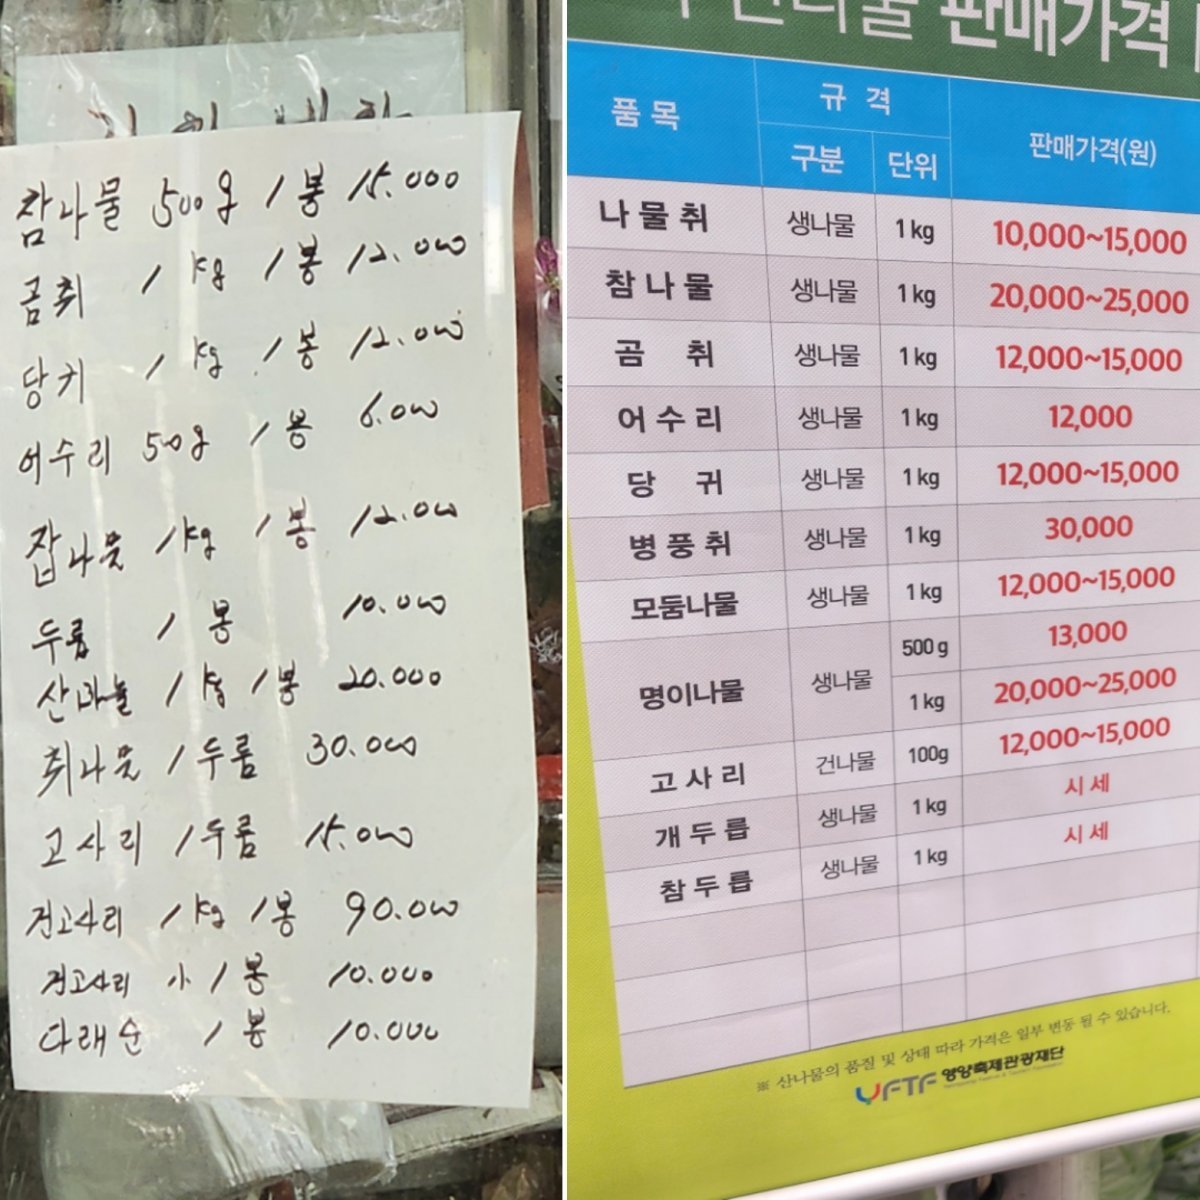 참나물 500g 1봉 15.000
곰취 1kg 1봉 12.000
당귀 1kg 1봉 12.000
어수리 50g 1봉 6.000
잡나물 1kg 1봉 12.000
두릅 1봉 10.000
산마늘 1kg 1봉 20.000
취나물 1두름 30.000
고사리 1두름 15.000
건고사리 1kg 1봉 90.000
건고사리 小 1봉 10.000
다래순 1봉 10.000
판매가격
품목 규격 판매가격(원)
구분 단위
나물취 생나물 1kg 10,000~15,000
참나물 생나물 1kg 20,000~25,000
곰취 생나물 1kg 12,000~15,000
어수리 생나물 1kg 12,000
당귀 생나물 1kg 12,000~15,000
병풍취 생나물 1kg 30,000
모둠나물 생나물 1kg 12,000~15,000
명이나물 생나물 500g 13,000
1kg 20,000~25,000
고사리 건나물 100g 12,000~15,000
개두릅 생나물 1kg 시세
참두릅 생나물 1kg 시세
※ 산나물의 품질 및 상태 따라 가격은 일부 변동 될 수 있습니다.
YFTF 영양축제관광재단